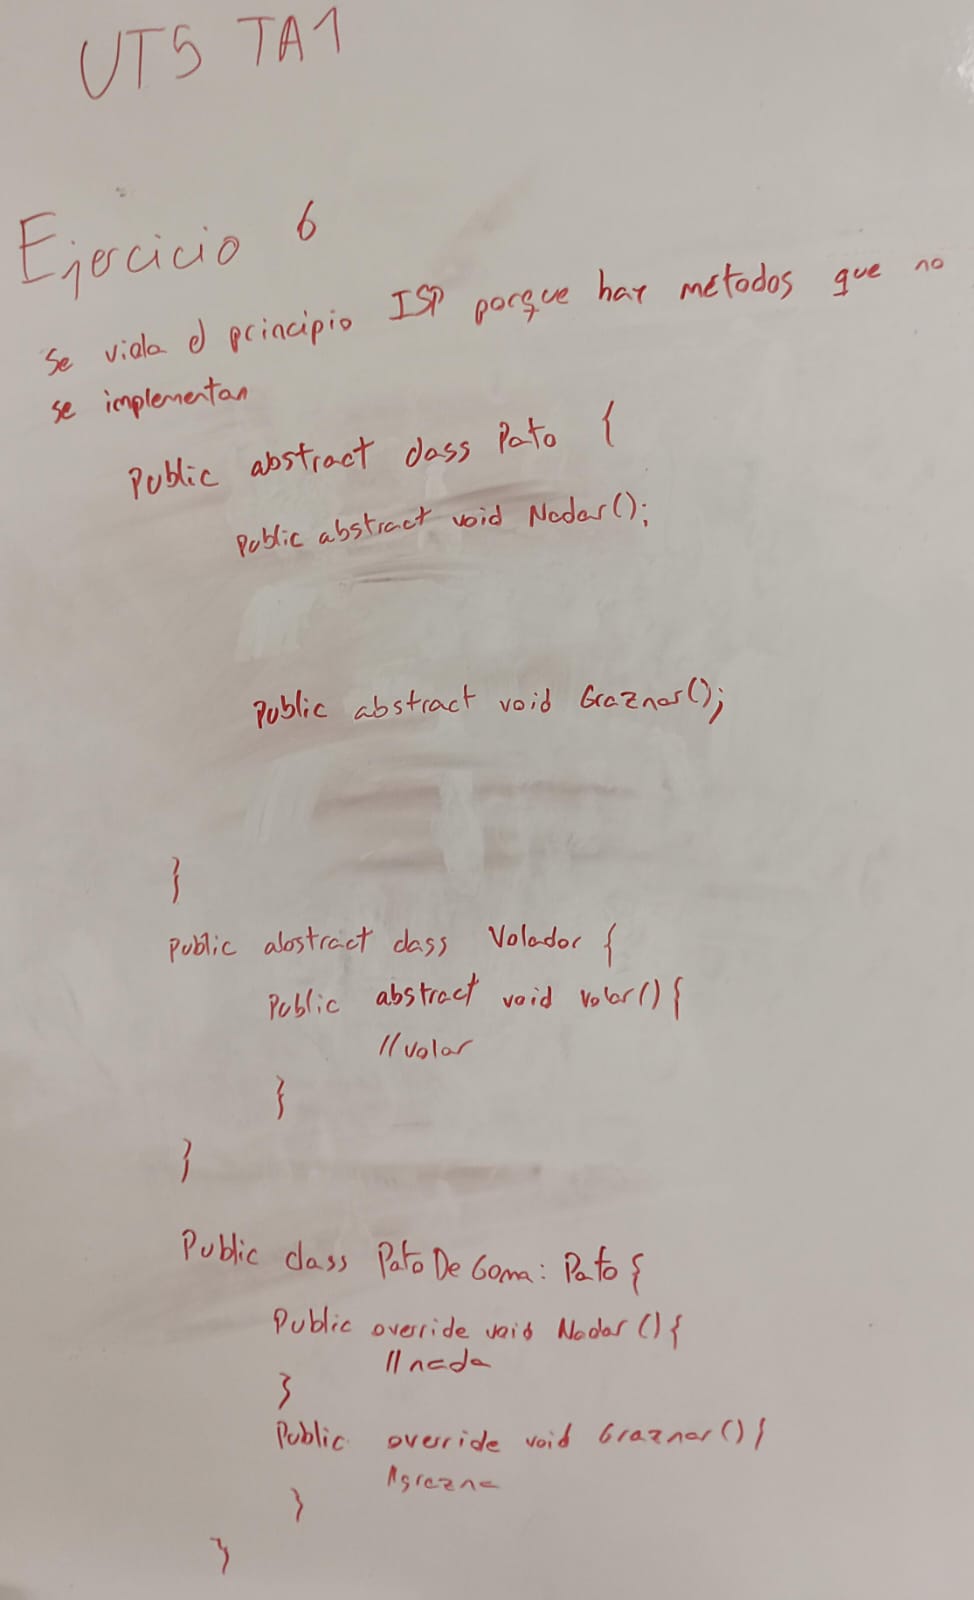 UT5 TA1
Ejercicio 6
Se viola el principio ISP porque hay métodos que no
se implementan
Public abstract class Pato {
Public abstract void Nadar();
Public abstract void Graznar();
}
Public abstract class Volador {
Public abstract void volar() {
//volar
}
}
Public class PatoDeGoma: Pato {
Public override void Nadar() {
//nada
}
Public override void Graznar() {
//grazna
}
}